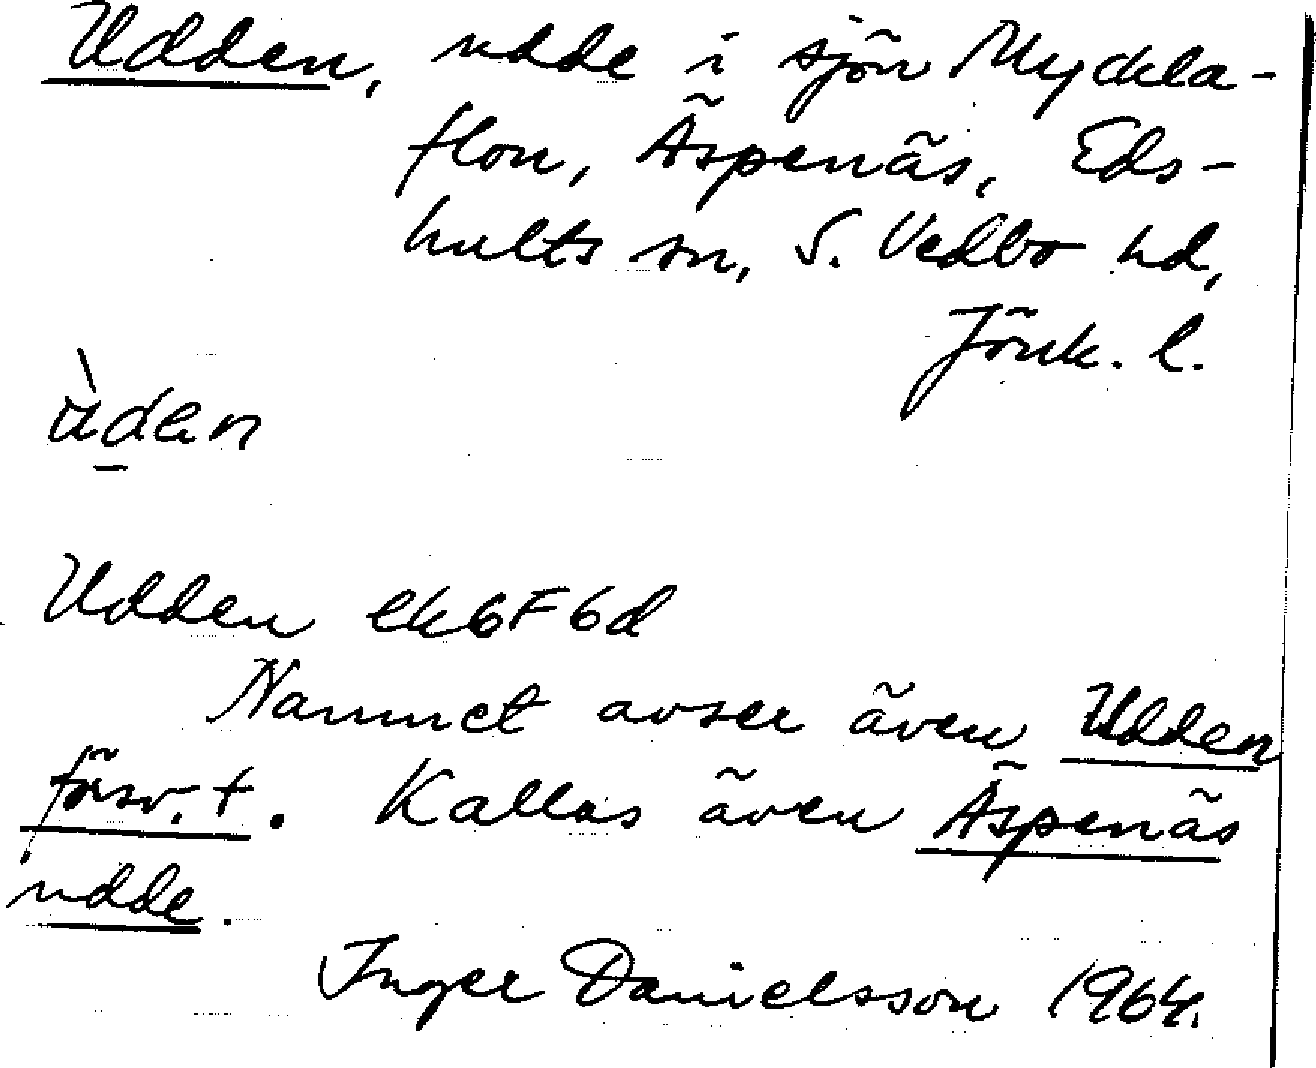 Udden, udde i sjön Myckla-
flon, Äspenäs, Eds-
hults sn, S. Vedbo hd,
Jönk. l.
ùden
Udden ek6F6d
Namnet avser även Udden
försv. t. Kallas även Äspenäs
udde.
Inger Danielsson 1964.